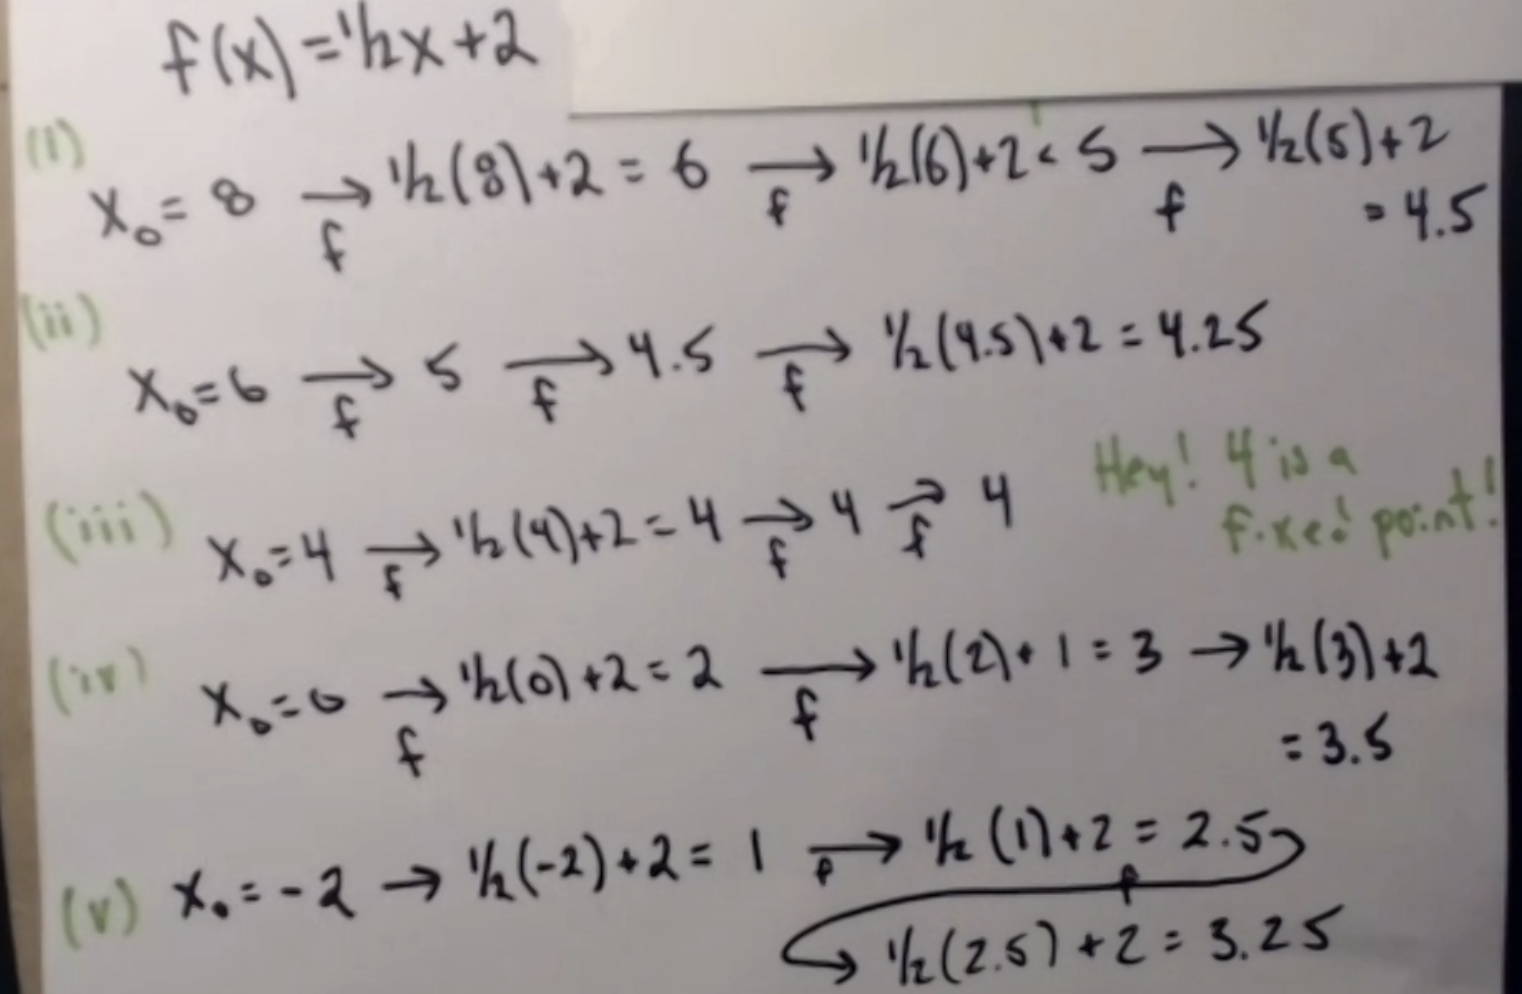 f(x) = 1/2x + 2
(i)
x₀ = 8 →f 1/2(8) + 2 = 6 →f 1/2(6) + 2 = 5 →f 1/2(5) + 2
= 4.5
(ii)
x₀ = 6 →f 5 →f 4.5 →f 1/2(4.5) + 2 = 4.25
(iii) x₀ = 4 →f 1/2(4) + 2 = 4 →f 4 →f 4
Hey! 4 is a
fixed point!
(iv) x₀ = 0 →f 1/2(0) + 2 = 2 →f 1/2(2) + 1 = 3 → 1/2(3) + 2
= 3.5
(v) x₀ = -2 → 1/2(-2) + 2 = 1 →f 1/2(1) + 2 = 2.5
f
→ 1/2(2.5) + 2 = 3.25